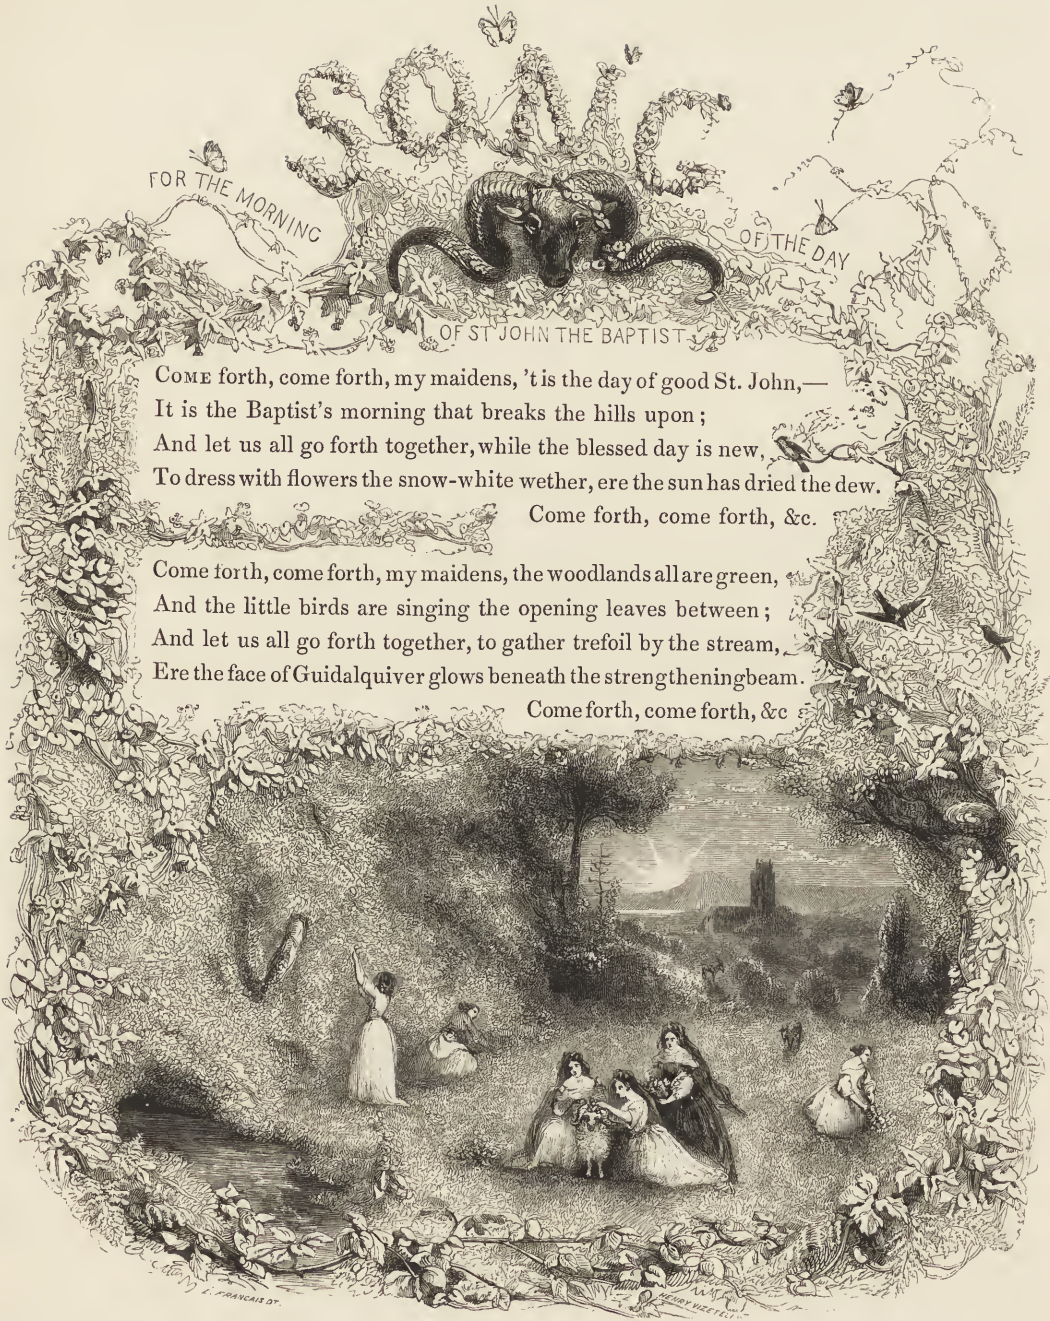 SONG
FOR THE MORNING OF THE DAY
OF ST JOHN THE BAPTIST
COME forth, come forth, my maidens, 't is the day of good St. John,—
It is the Baptist's morning that breaks the hills upon;
And let us all go forth together, while the blessed day is new,
To dress with flowers the snow-white wether, ere the sun has dried the dew.
Come forth, come forth, &c.
Come forth, come forth, my maidens, the woodlands all are green,
And the little birds are singing the opening leaves between;
And let us all go forth together, to gather trefoil by the stream,
Ere the face of Guidalquiver glows beneath the strengthening beam.
Come forth, come forth, &c
L. FRANCAIS DT.
HENRY VIZETELLY